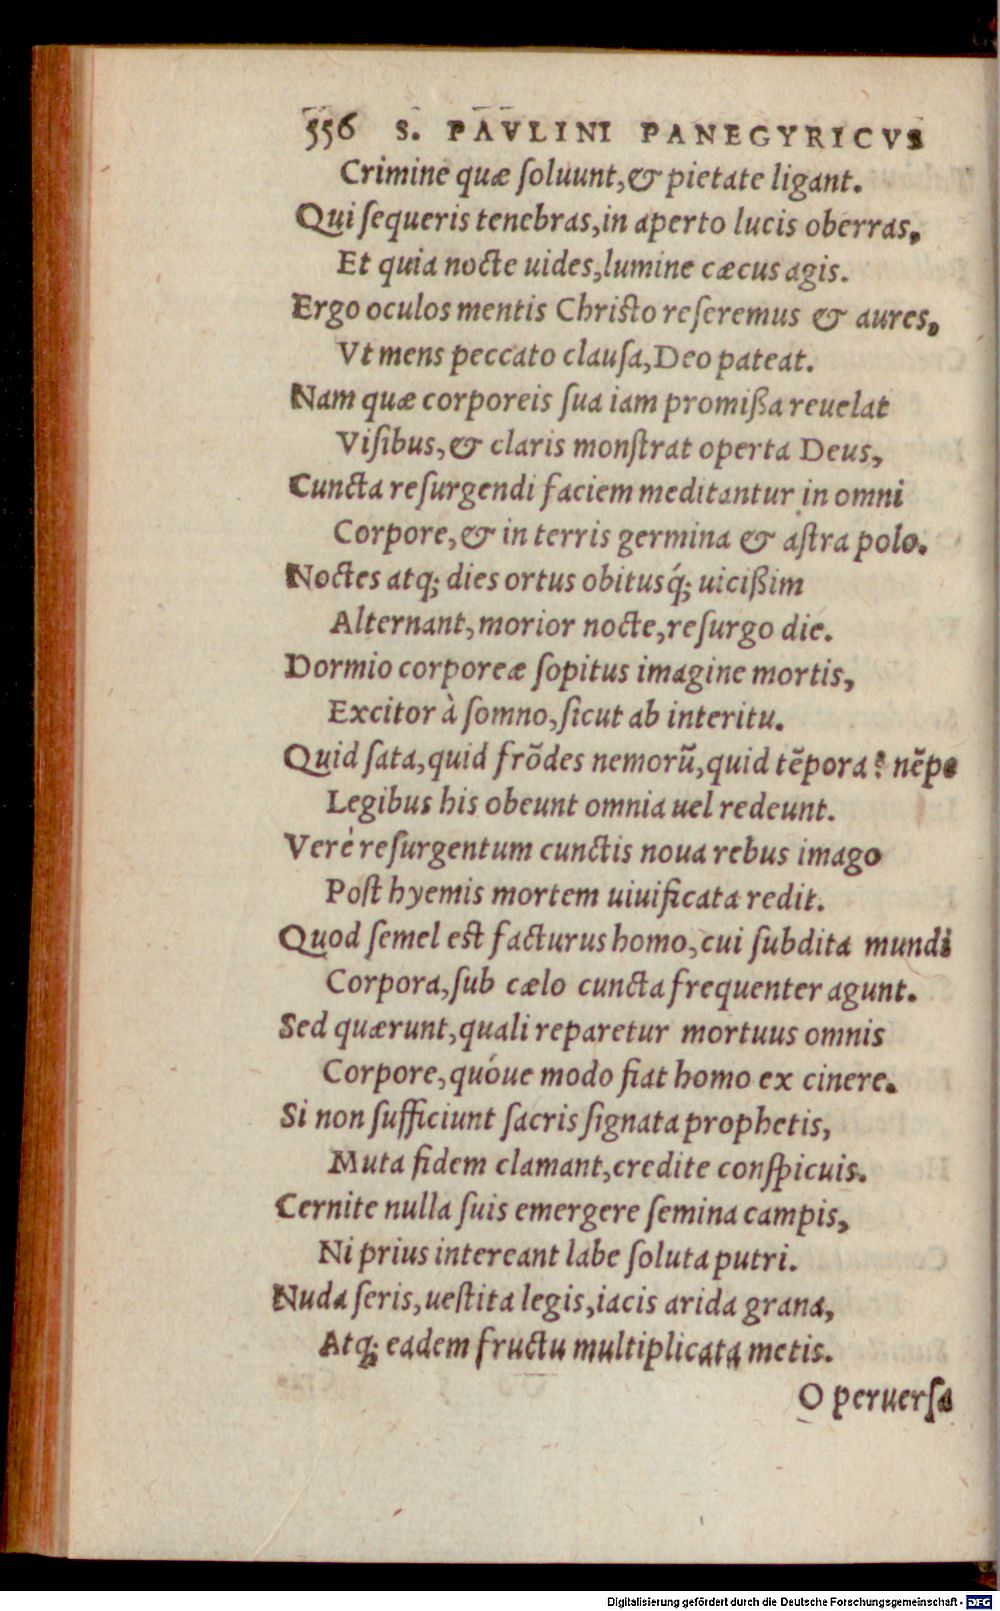 556 S. PAVLINI PANEGYRICVS
Crimine quæ ſoluunt, & pietate ligant.
Qui ſequeris tenebras, in aperto lucis oberras,
Et quia nocte uides, lumine cæcus agis.
Ergo oculos mentis Christo reſeremus & aures,
Vt mens peccato clauſa, Deo pateat.
Nam quæ corporeis ſua iam promißa reuelat
Viſibus, & claris monſtrat operta Deus,
Cuncta reſurgendi faciem meditantur in omni
Corpore, & in terris germina & aſtra polo.
Noctes atq; dies ortus obitusq́; uicißim
Alternant, morior nocte, reſurgo die.
Dormio corporeæ ſopitus imagine mortis,
Excitor à ſomno, ſicut ab interitu.
Quid ſata, quid frōdes nemorū, quid tēpora? nēpe
Legibus his obeunt omnia uel redeunt.
Verè reſurgentum cunctis noua rebus imago
Poſt hyemis mortem uiuificata redit.
Quod ſemel est facturus homo, cui ſubdita mundi
Corpora, ſub cælo cuncta frequenter agunt.
Sed quærunt, quali reparetur mortuus omnis
Corpore, quóue modo fiat homo ex cinere.
Si non ſufficiunt ſacris ſignata prophetis,
Muta fidem clamant, credite conſpicuis.
Cernite nulla ſuis emergere ſemina campis,
Ni prius intereant labe ſoluta putri.
Nuda ſeris, ueſtita legis, iacis arida grana,
Atq; eadem fructu multiplicata metis.
O peruerſa
Digitalisierung gefördert durch die Deutsche Forschungsgemeinschaft - DFG